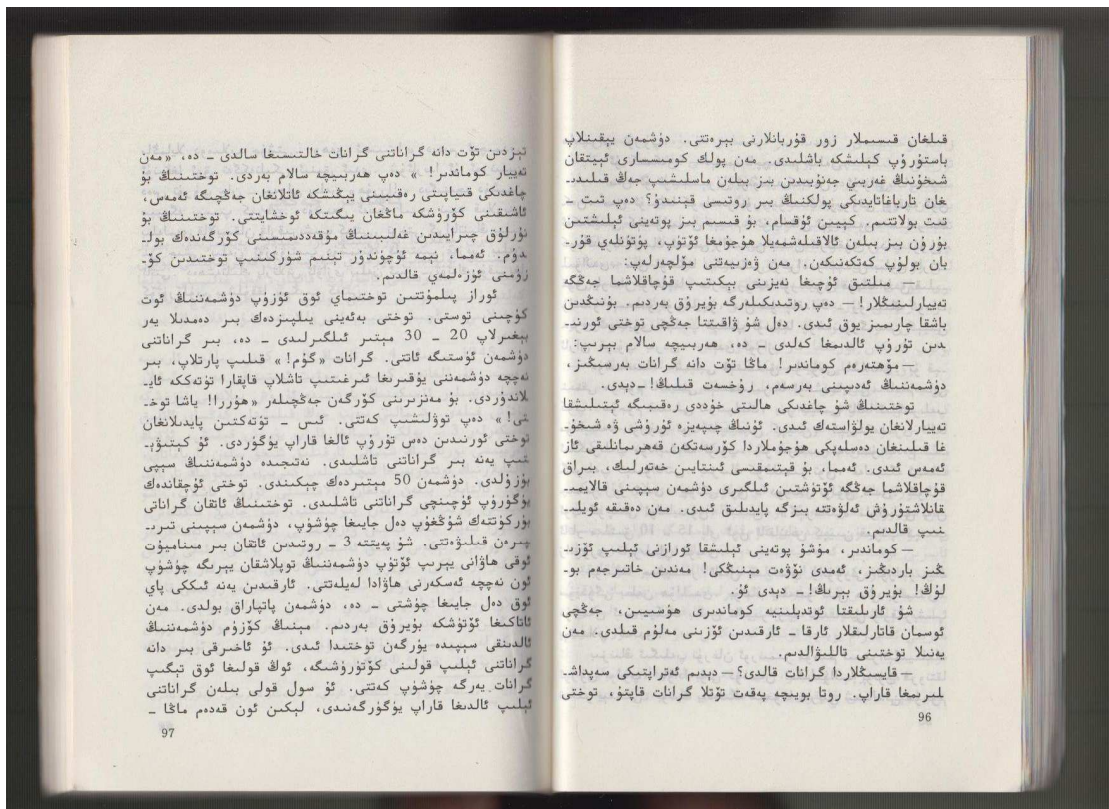 قىلغان قىسىملار زور قۇربانلارنى بېرەتتى. دۈشمەن يېقىنلاپ
باستۇرۇپ كېلىشكە باشلىدى. مەن پولك كومىسسارى ئېيتقان
شىخونىڭ غەربىي جەنۇبىدىن بىز بىلەن ماسلىشىپ جەڭ قىلىدى‍ـ
غان تارباغاتايدىكى پولكنىڭ بىر روتىسى قېنىدۇ؟ دەپ تىت ـ
تىت بولاتتىم. كېيىن ئۇقسام، بۇ قىسىم بىز پوتەينى ئېلىشتىن
بۇرۇن بىز بىلەن ئالاقىلەشمەيلا ھۇجۇمغا ئۆتۈپ، پۈتۈنلەي قۇر‍ـ
بان بولۇپ كەتكەنىكەن. مەن ۋەزىيەتنى مۆلچەرلەپ:
— مىلتىق ئۇچىغا نەيزىنى بېكىتىپ قۇچاقلاشما جەڭگە
تەييارلىنىڭلار! — دەپ روتىدىكىلەرگە بۇيرۇق بەردىم. بۇنىڭدىن
باشقا چارىمىز يوق ئىدى. دەل شۇ ۋاقىتتا جەڭچى توختى ئورنى‍ـ
دىن تۇرۇپ ئالدىمغا كەلدى ـ دە، ھەربىيچە سالام بېرىپ:
— مۆھتەرەم كوماندىر! ماڭا تۆت دانە گرانات بەرسىڭىز،
دۈشمەننىڭ ئەدىپىنى بەرسەم، رۇخسەت قىلىڭ! — دېدى.
توختىنىڭ شۇ چاغدىكى ھالىتى خۇددى رەقىبىگە ئېتىلىشقا
تەييارلانغان يولۋاستەك ئىدى. ئۇنىڭ چىپەيزە ئۇرۇشى ۋە شىخو‍ـ
غا قىلىنغان دەسلەپكى ھۇجۇملاردا كۆرسەتكەن قەھرىمانلىقى ئاز
ئەمەس ئىدى. ئەمما، بۇ قېتىمقىسى ئىنتايىن خەتەرلىك، بىراق
قۇچاقلاشما جەڭگە ئۆتۈشتىن ئىلگىرى دۈشمەن سېپىنى قالايمى‍ـ
قانلاشتۇرۇش ئەلۋەتتە بىزگە پايدىلىق ئىدى. مەن دەققە ئويلى‍ـ
نىپ قالدىم.
— كوماندىر، مۇشۇ پوتەينى ئېلىشقا ئورازنى ئېلىپ ئۆزى‍ـ
ڭىز باردىڭىز، ئەمدى نۆۋەت مېنىڭكى! مەندىن خاتىرجەم بو‍ـ
لۇڭ! بۇيرۇق بېرىڭ! — دېدى ئۇ.
شۇ ئارىلىقتا ئوتدېلىنىيە كوماندىرى ھۈسىيىن، جەڭچى
ئوسمان قاتارلىقلار ئارقا ـ ئارقىدىن ئۆزىنى مەلۇم قىلدى. مەن
يەنىلا توختىنى تاللىۋالدىم.
— قايسىڭلاردا گرانات قالدى؟ — دېدىم ئەتراپتىكى سەپداش‍ـ
لىرىمغا قاراپ. روتا بويىچە پەقەت تۆتلا گرانات قاپتۇ، توختى
96
تېزدىن تۆت دانە گراناتنى گرانات خالتىسىغا سالدى ـ دە، «مەن
تەييار كوماندىر! » دەپ ھەربىيچە سالام بەردى. توختىنىڭ بۇ
چاغدىكى قىياپىتى رەقىبىنى يېڭىشكە ئاتلانغان جەڭچىگە ئەمەس،
ئاشىقىنى كۆرۈشكە ماڭغان يىگىتكە ئوخشايتتى. توختىنىڭ بۇ
نۇرلۇق چىرايىدىن غەلىبىنىڭ مۇقەددىمىسىنى كۆرگەندەك بول‍ـ
دۇم. ئەمما، نېمە ئۈچۈندۇر تېنىم شۈركىنىپ توختىدىن كۆ‍ـ
زۈمنى ئۈزەلمەي قالدىم.
ئوراز پىلمۇتتىن توختىماي ئوق ئۈزۈپ دۈشمەننىڭ ئوت
كۈچىنى توستى. توختى بەئەينى يىلپىزدەك بىر دەمدىلا يەر
بېغىرلاپ 20 ـ 30 مېتىر ئىلگىرىلىدى ـ دە، بىر گراناتنى
دۈشمەن ئۈستىگە ئاتتى. گرانات «گۈم!» قىلىپ پارتلاپ، بىر
نەچچە دۈشمەننى يۇقىرىغا ئىرغىتىپ تاشلاپ قاپقارا تۈتەككە ئاي‍ـ
لاندۇردى. بۇ مەنزىرىنى كۆرگەن جەڭچىلەر «ھۇررا! ياشا توخ‍ـ
تى! » دەپ توۋلىشىپ كەتتى. ئىس ـ تۈتەكتىن پايدىلانغان
توختى ئورنىدىن دەس تۇرۇپ ئالغا قاراپ يۈگۈردى. ئۇ كېتىۋې‍ـ
تىپ يەنە بىر گراناتنى تاشلىدى. نەتىجىدە دۈشمەننىڭ سېپى
بۇزۇلدى. دۈشمەن 50 مېتىردەك چېكىندى. توختى ئۇچقاندەك
يۈگۈرۈپ ئۈچىنچى گراناتنى تاشلىدى. توختىنىڭ ئاتقان گراناتى
بۈركۈتتەك شۇڭغۇپ دەل جايىغا چۈشۈپ، دۈشمەن سېپىنى تىرى‍ـ
پىرەن قىلىۋەتتى. شۇ پەيتتە 3 ـ روتىدىن ئاتقان بىر مىناميوت
ئوقى ھاۋانى يېرىپ ئۆتۈپ دۈشمەننىڭ توپلاشقان يېرىگە چۈشۈپ
ئون نەچچە ئەسكەرنى ھاۋادا لەيلەتتى. ئارقىدىن يەنە ئىككى پاي
ئوق دەل جايىغا چۈشتى ـ دە، دۈشمەن پاتىپاراق بولدى. مەن
ئاتاكىغا ئۆتۈشكە بۇيرۇق بەردىم. مېنىڭ كۆزۈم دۈشمەننىڭ
ئالدىنقى سېپىدە يۈرگەن توختىدا ئىدى. ئۇ ئاخىرقى بىر دانە
گراناتنى ئېلىپ قولىنى كۆتۈرۈشىگە، ئوڭ قولىغا ئوق تېگىپ
گرانات يەرگە چۈشۈپ كەتتى. ئۇ سول قولى بىلەن گراناتنى
ئېلىپ ئالدىغا قاراپ يۈگۈرگەنىدى، لېكىن ئون قەدەم ماڭا ـ
97